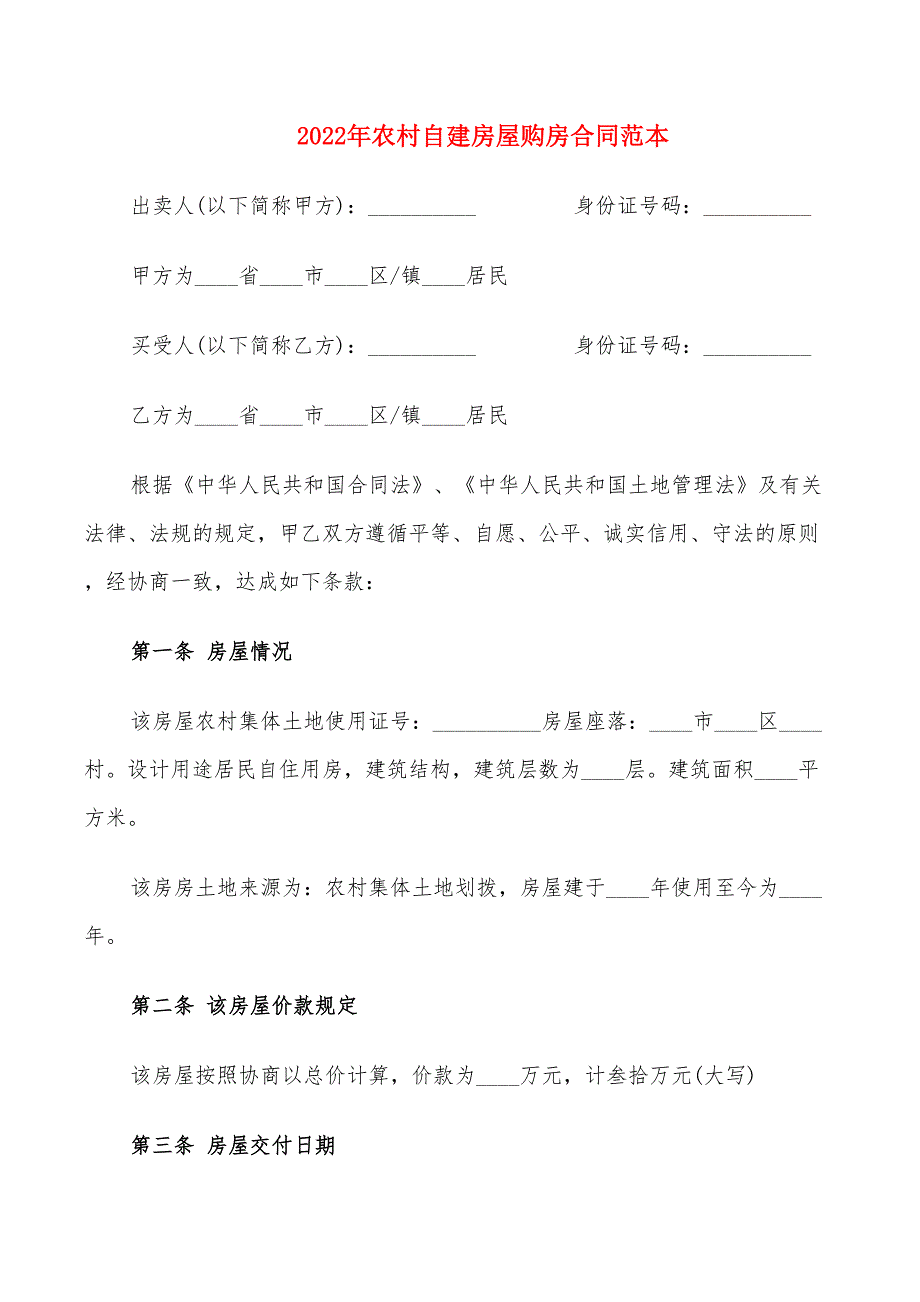 2022年农村自建房屋购房合同范本
出卖人(以下简称甲方)：__________ 身份证号码：__________
甲方为____省____市____区/镇____居民
买受人(以下简称乙方)：__________ 身份证号码：__________
乙方为____省____市____区/镇____居民
根据《中华人民共和国合同法》、《中华人民共和国土地管理法》及有关
法律、法规的规定，甲乙双方遵循平等、自愿、公平、诚实信用、守法的原则
，经协商一致，达成如下条款：
第一条 房屋情况
该房屋农村集体土地使用证号：__________房屋座落：____市____区____
村。设计用途居民自住用房，建筑结构，建筑层数为____层。建筑面积____平
方米。
该房房土地来源为：农村集体土地划拨，房屋建于____年使用至今为____
年。
第二条 该房屋价款规定
该房屋按照协商以总价计算，价款为____万元，计叁拾万元(大写)
第三条 房屋交付日期